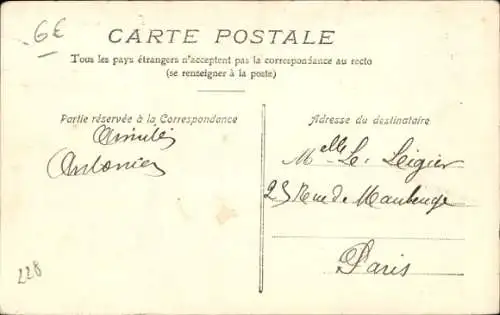 6€
CARTE POSTALE
Tous les pays étrangers n'acceptent pas la correspondance au recto
(se renseigner à la poste)
Partie réservée à la Correspondance
Adresse du destinataire
Amitiés
Antonia
Melle Le Leigier
25 Rue de Maubeuge
Paris
228